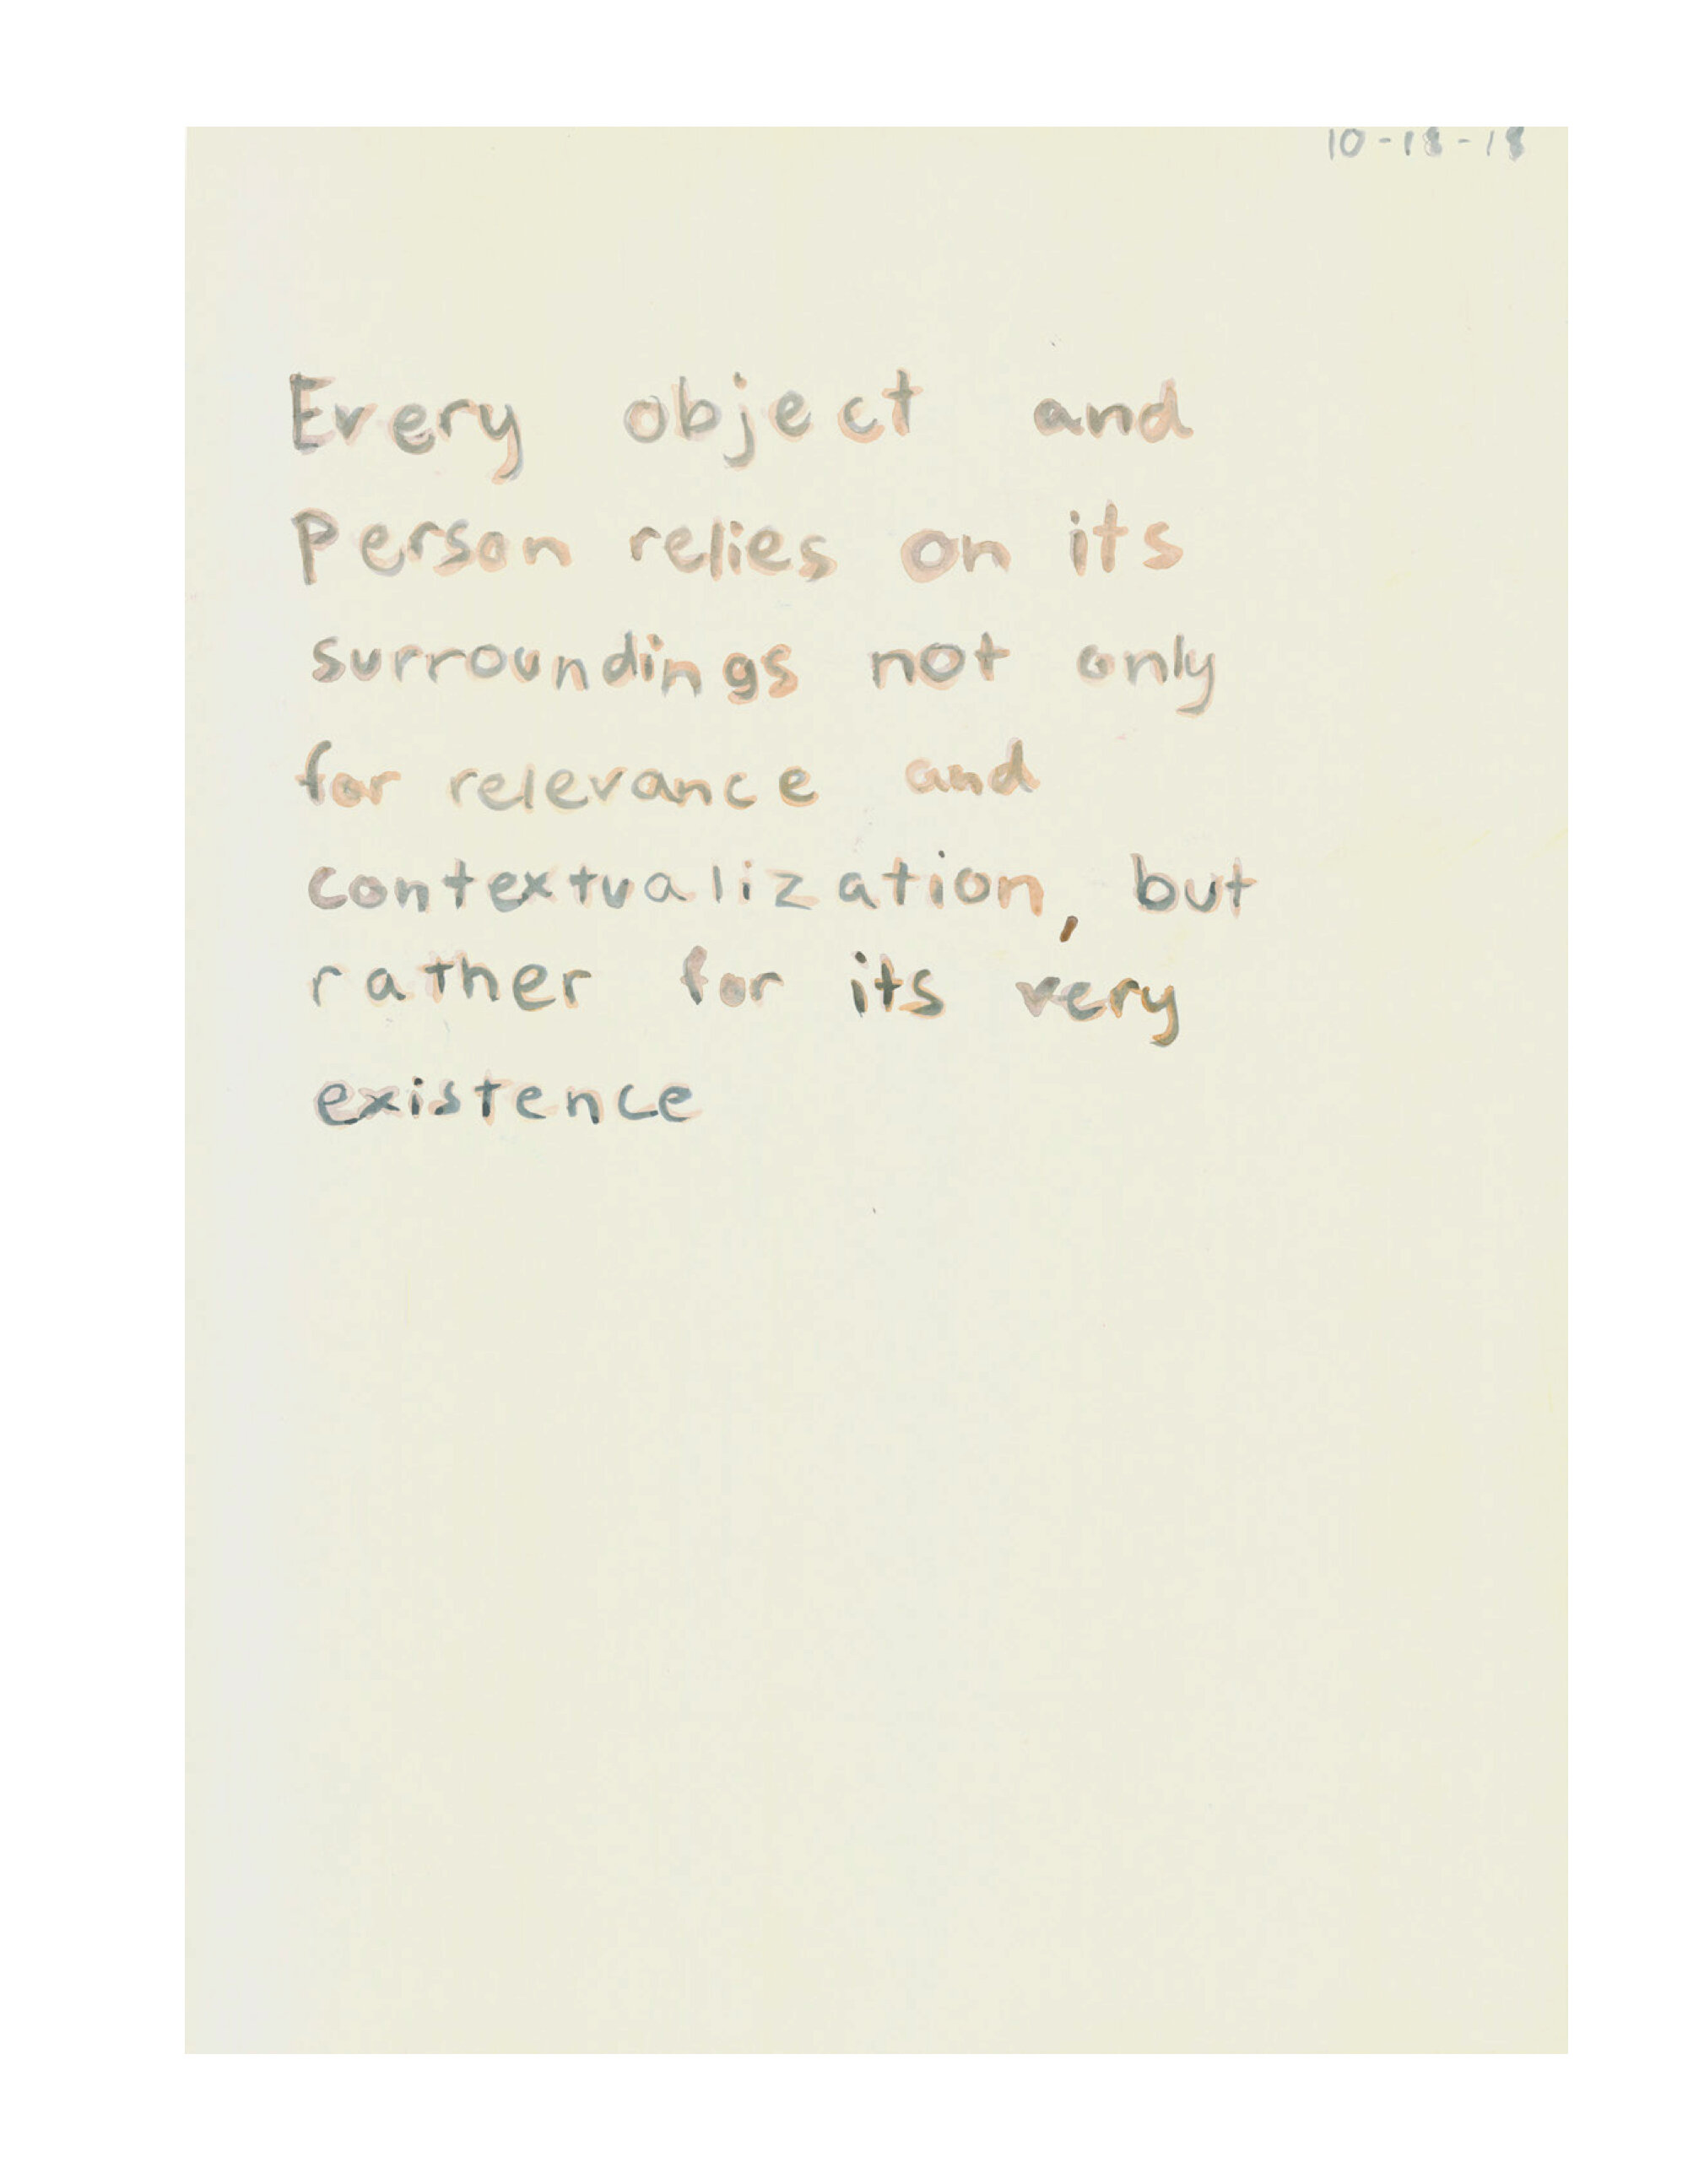 10-18-18
Every object and
Person relies on its
surroundings not only
for relevance and
contextualization, but
rather for its very
existence